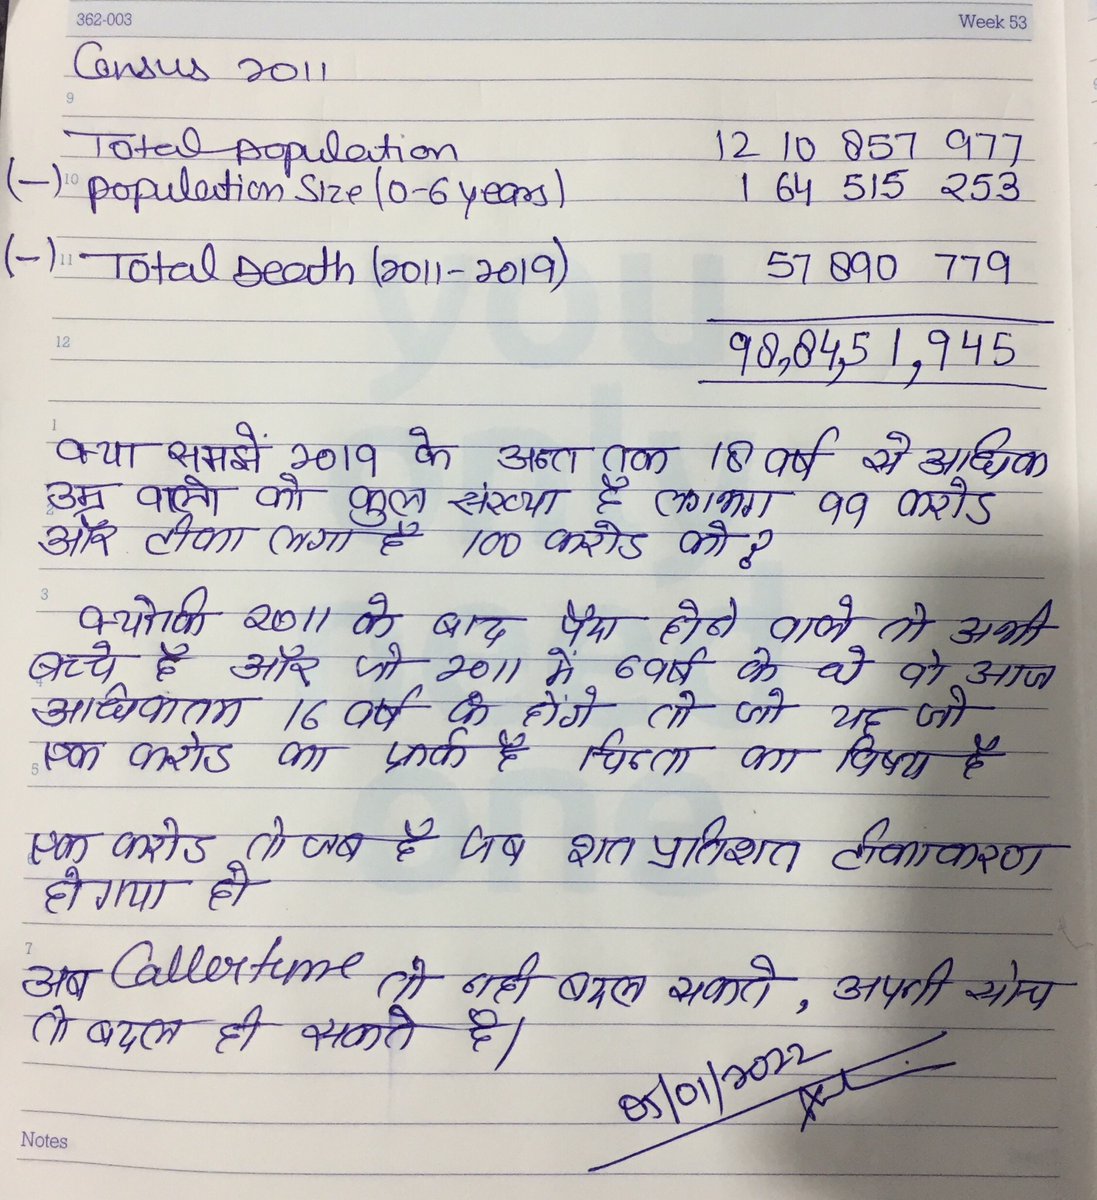 362-003 Week 53
Census 2011
9
Total population 12 10 857 977
(-) 10 population Size (0-6 years) 1 64 515 253
(-) 11 Total Death (2011-2019) 57 890 779
12 98,84,51,945
1
क्या समझें 2019 के अन्त तक 18 वर्ष से अधिक
उम्र वालो की कुल संख्या है लगभग 99 करोड
और टीका लगा है 100 करोड को?
3
क्योकि 2011 के बाद पैदा होने वाले तो अभी
बच्चे है और जो 2011 में 6 वर्ष के थे वो आज
अधिकतम 16 वर्ष के होंगे तो जो यह जो
एक करोड का फर्क है चिन्ता का विषय है
5
एक करोड तो तब है जब शत प्रतिशत टीकाकरण
हो गया हो
7
अब Callertune तो नही बदल सकते, अपनी सोच
तो बदल ही सकते है।
05/01/2022
Notes
you
only
one